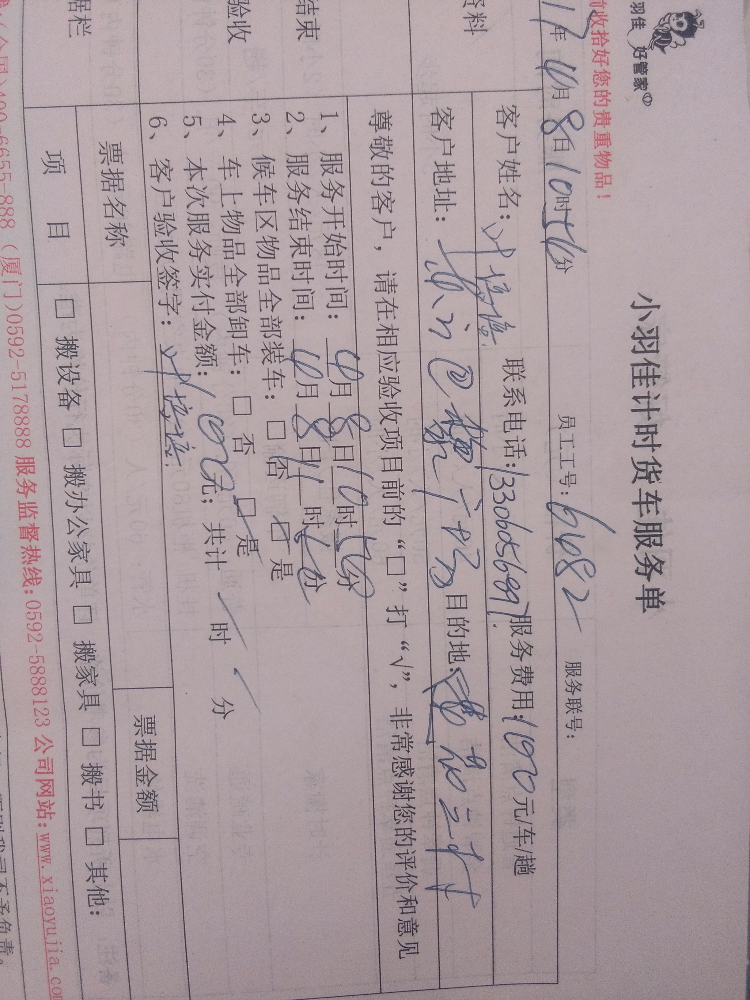 羽佳 好管家
小羽佳计时货车服务单
前收拾好您的贵重物品!
17年10月8日10时56分 员工工号: 6682 服务联号:
资料 客户姓名: 联系电话: 服务费用:100元/车/趟
客户地址: 目的地:
尊敬的客户,请在相应验收项目前的“□”打“√”,非常感谢您的评价和意见
结束
验收
1、服务开始时间: 10月8日10时56分
2、服务结束时间: 10月8日11时 分
3、候车区物品全部装车:□ 否 □ 是
4、车上物品全部卸车:□ 否 □ 是
5、本次服务实付金额:100元;共计 时 分
6、客户验收签字:
据栏 票据名称 票据金额
项 目 □ 搬设备 □ 搬办公家具 □ 搬家具 □ 搬书 □ 其他:
(全国)400-6655-888 (厦门)0592-5178888 服务监督热线:0592-5888123 公司网站:www.xiaoyujia.co